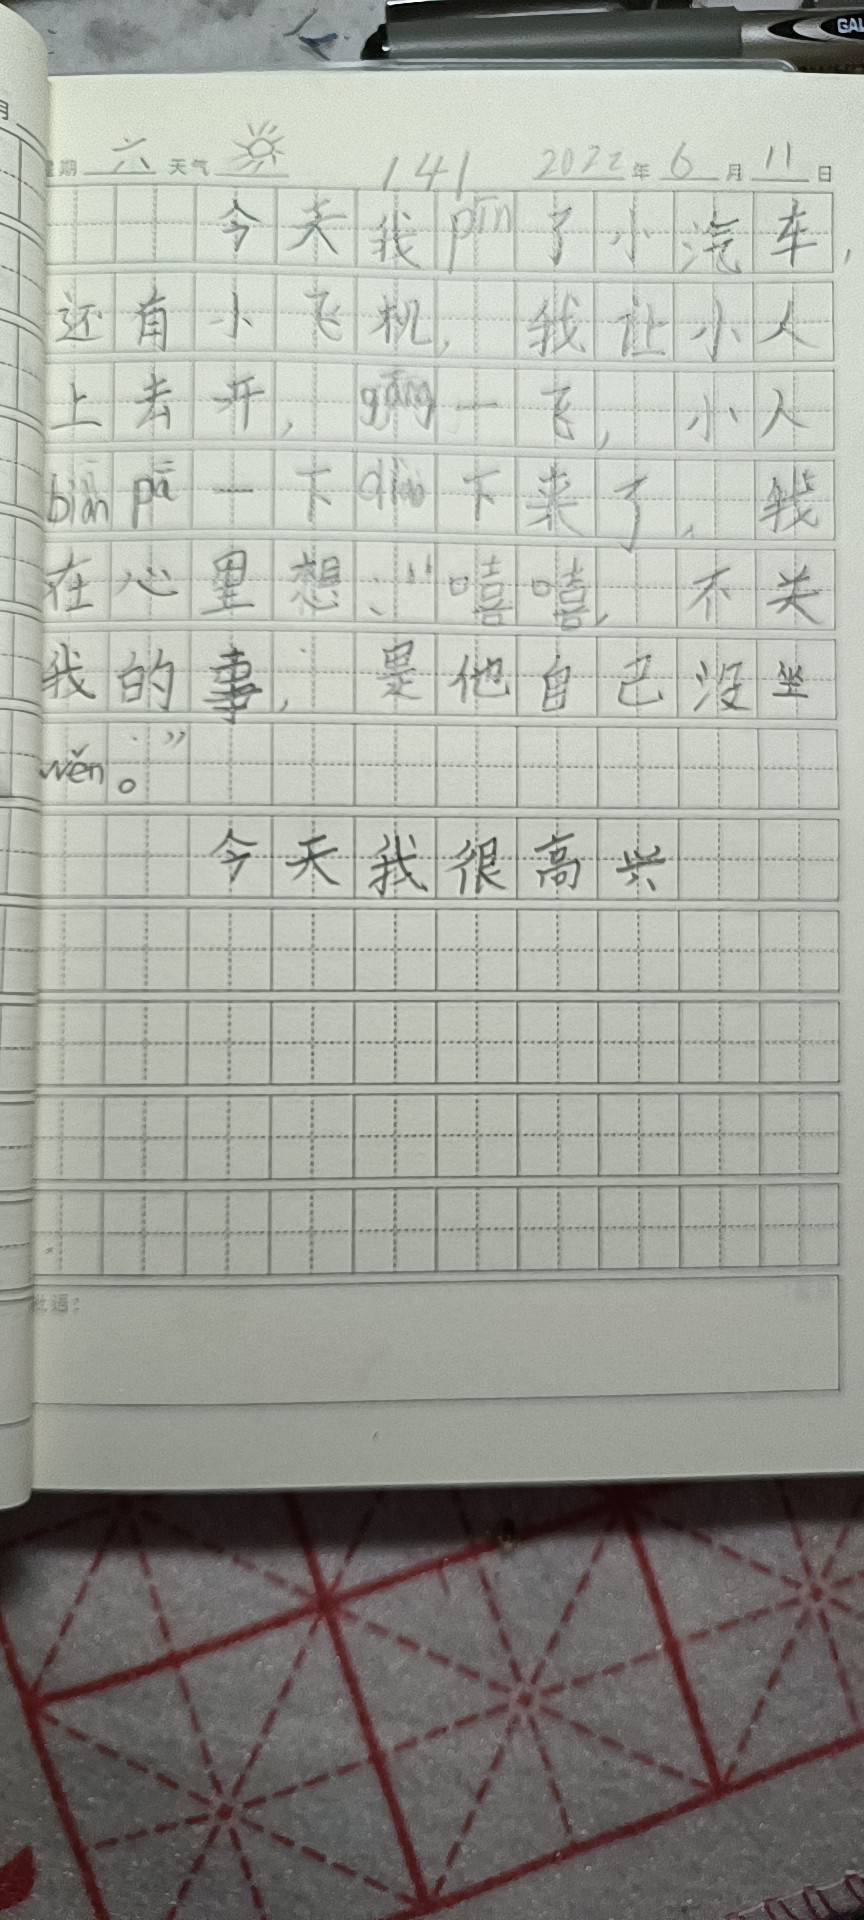 月
GAL
星期 六 天气
141
2022 年 6 月 11 日
今天我pīn了小汽车,
还有小飞机, 我让小人
上去开, gāng一飞, 小人
biān pā 一下 diào 下来了, 我
在心里想:“嘻嘻, 不关
我的事, 是他自己没坐
wěn。”
今天我很高兴
批语: